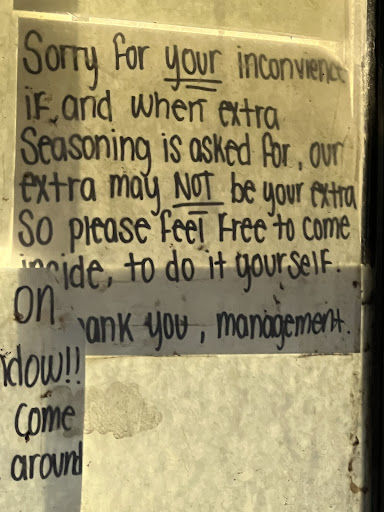 Sorry for your inconvience
if, and when extra
Seasoning is asked for, our
extra may NOT be your extra
So please feel free to come
inside, to do it yourself.
Thank you, management.
on
ndow!!
Come
around